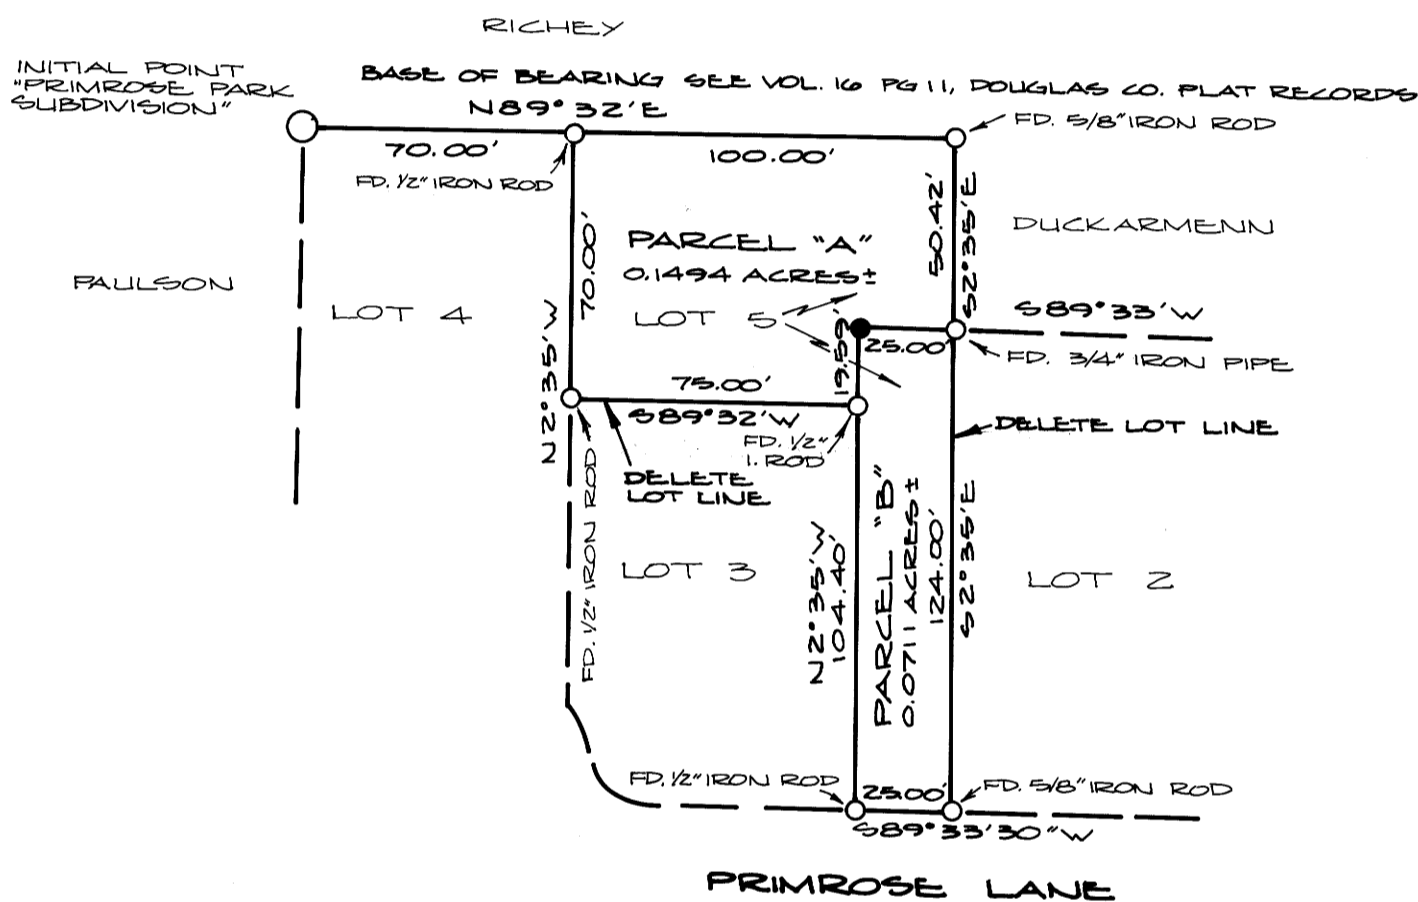 RICHEY
INITIAL POINT
"PRIMROSE PARK
SUBDIVISION"
BASE OF BEARING SEE VOL. 16 PG 11, DOUGLAS CO. PLAT RECORDS
N89°32'E
FD. 5/8" IRON ROD
70.00'
100.00'
FD. 1/2" IRON ROD
50.42'
S2°35'E
DUCKARMENN
PARCEL "A"
0.1494 ACRES±
70.00'
PAULSON
LOT 4
LOT 5
N2°35'W
19.59'
25.00'
S89°33'W
FD. 3/4" IRON PIPE
75.00'
S89°32'W
FD. 1/2"
I. ROD
DELETE LOT LINE
DELETE
LOT LINE
FD. 1/2" IRON ROD
LOT 3
N2°35'W
104.40'
PARCEL "B"
0.0711 ACRES±
124.00'
S2°35'E
LOT 2
FD. 1/2" IRON ROD
25.00'
FD. 5/8" IRON ROD
S89°33'30"W
PRIMROSE LANE